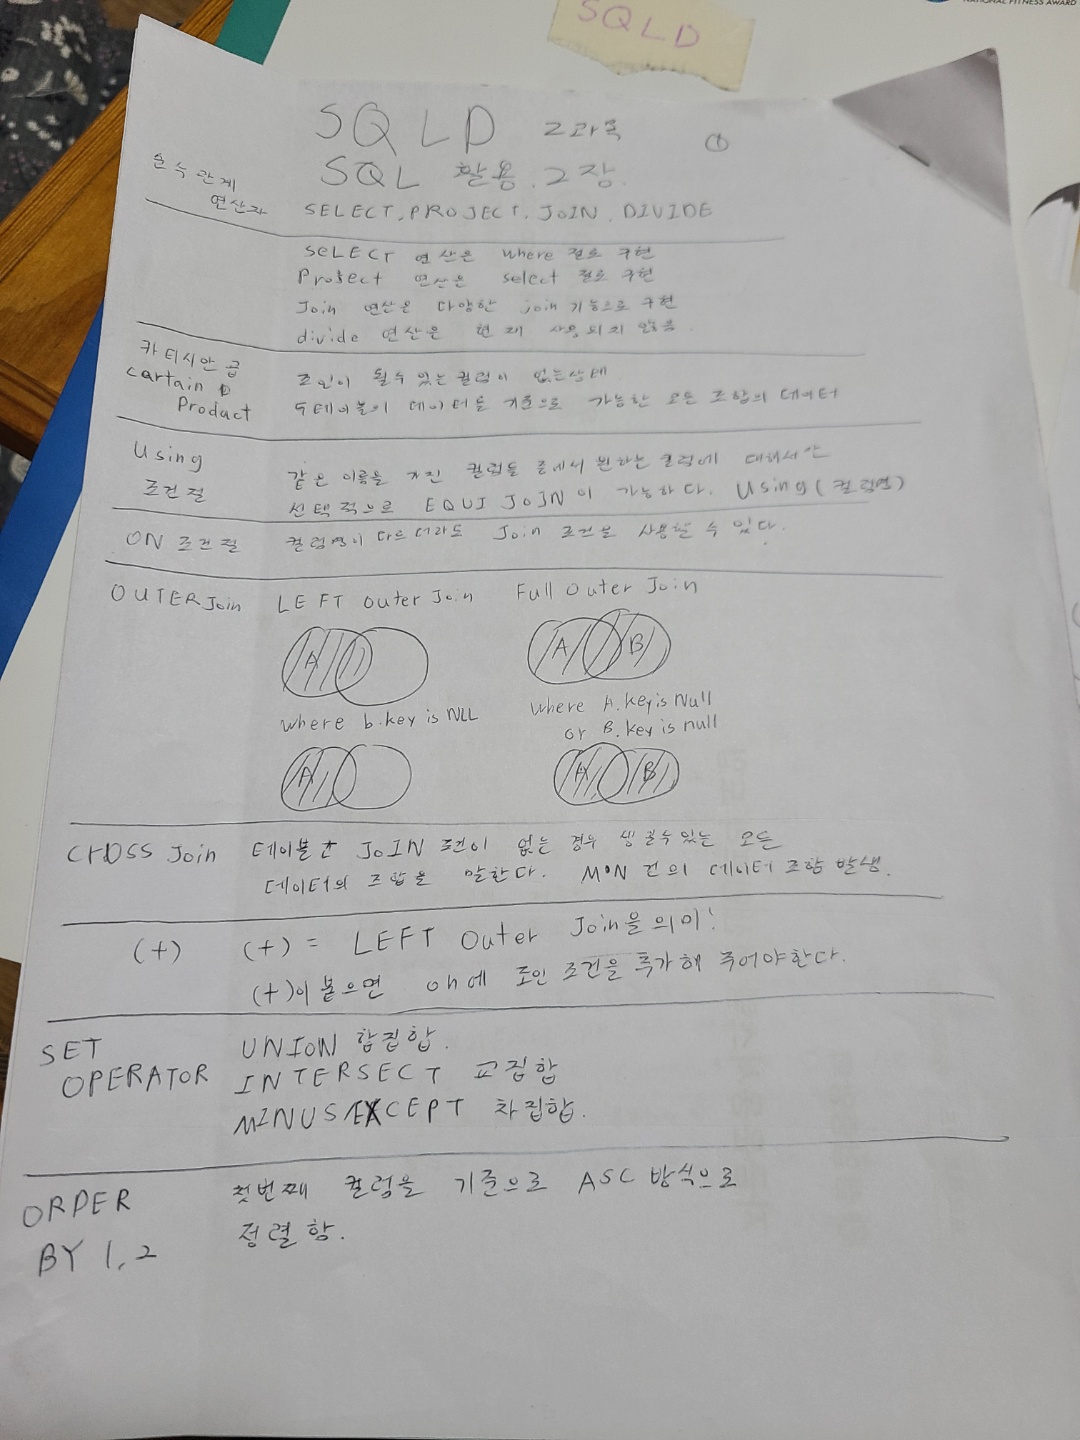 NATIONAL FITNESS AWARD
SQLD
SQLD 2과목 ①
SQL 활용 2장.
순수관계
연산자
SELECT, PROJECT, JOIN, DIVIDE
SELECT 연산은 where 절로 구현
Project 연산은 select 절로 구현
Join 연산은 다양한 join 기능으로 구현
divide 연산은 현재 사용되지 않음.
카티시안 곱
Cartain P
Product
조인이 될수있는 컬럼이 없는상태
두테이블의 데이터를 기준으로 가능한 모든 조합의 데이터
Using
조건절
같은 이름을 가진 컬럼들 중에서 원하는 컬럼에 대해서만
선택적으로 EQUI JOIN이 가능하다. Using(컬럼명)
ON 조건절
컬럼명이 다르더라도 Join 조건을 사용할 수 있다.
OUTER Join
LEFT outer Join Full Outer Join
A A B
where b.key is NLL
where A.key is Null
or B.key is null
A A B
CrOSS Join
테이블간 JOIN 조건이 없는 경우 생길수있는 모든
데이터의 조합을 말한다. M*N 건의 데이터 조합 발생.
(+)
(+) = LEFT Outer Join을 의미!
(+)이 붙으면 on에 조인 조건을 추가해 주어야한다.
SET
OPERATOR
UNION 합집합.
INTERSECT 교집합
MINUS/EXCEPT 차집합.
ORPER
BY 1, 2
첫번째 컬럼을 기준으로 ASC 방식으로
정렬함.